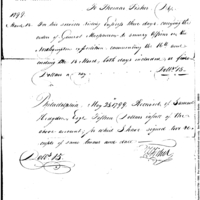 To Thomas Fisher Dr.
1799
For his services riding express three days carrying the
orders of General Macpherson to sundry Officers on the
Northampton expedition commencing the 16th and
ending the 18 March, both days included, at five
Dollars a day
Dolls 15.
Philadelphia May 24th 1799. Received of Samuel
Hodgdon Esqr Fifteen Dollars in full of the
above account, for which I have signed two re-
ceipts of same tenor and date
Dolls 15.